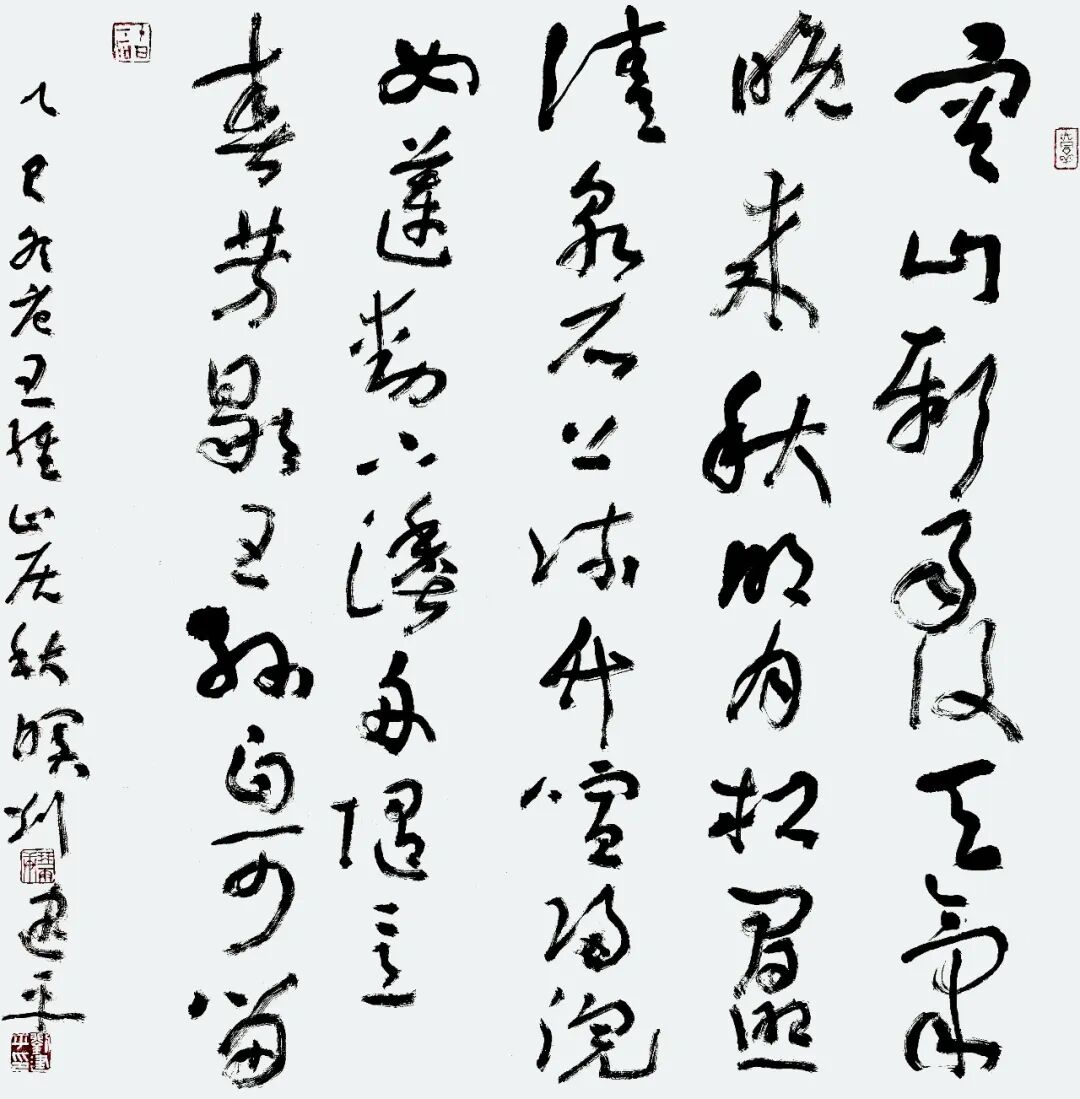 空山新雨後天氣
晚来秋明月松間照
清泉石上流竹喧歸浣
女蓮動下漁舟随意
春芳歇王孫自可留
乙巳冬王維山居秋暝刘建平